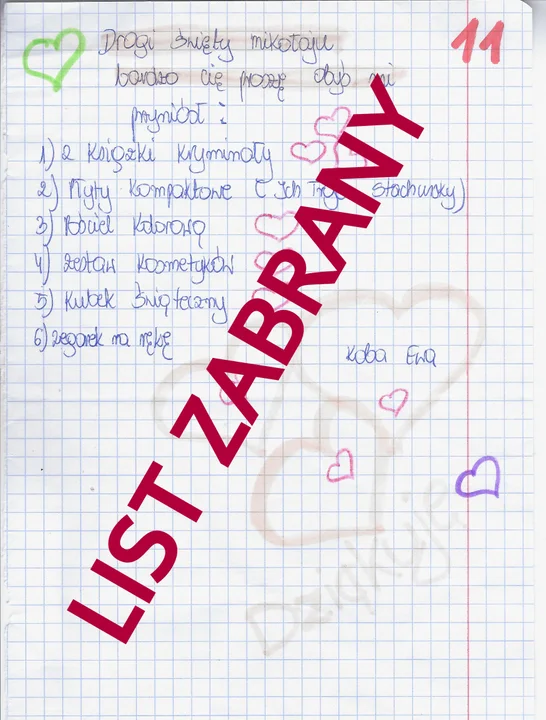 Drogi Święty mikołaju
11
bardzo cię proszę abyś mi
przyniósł :
1) 2 Książki kryminały
2) Płyty Kompaktowe ( Ich Troje Stachursky)
3) Pościel Kolorową
4) zestaw Kosmetyków
5) Kubek świąteczny
6) zegarek na rękę
Koba Ewa
Dziękuję
LIST ZABRANY